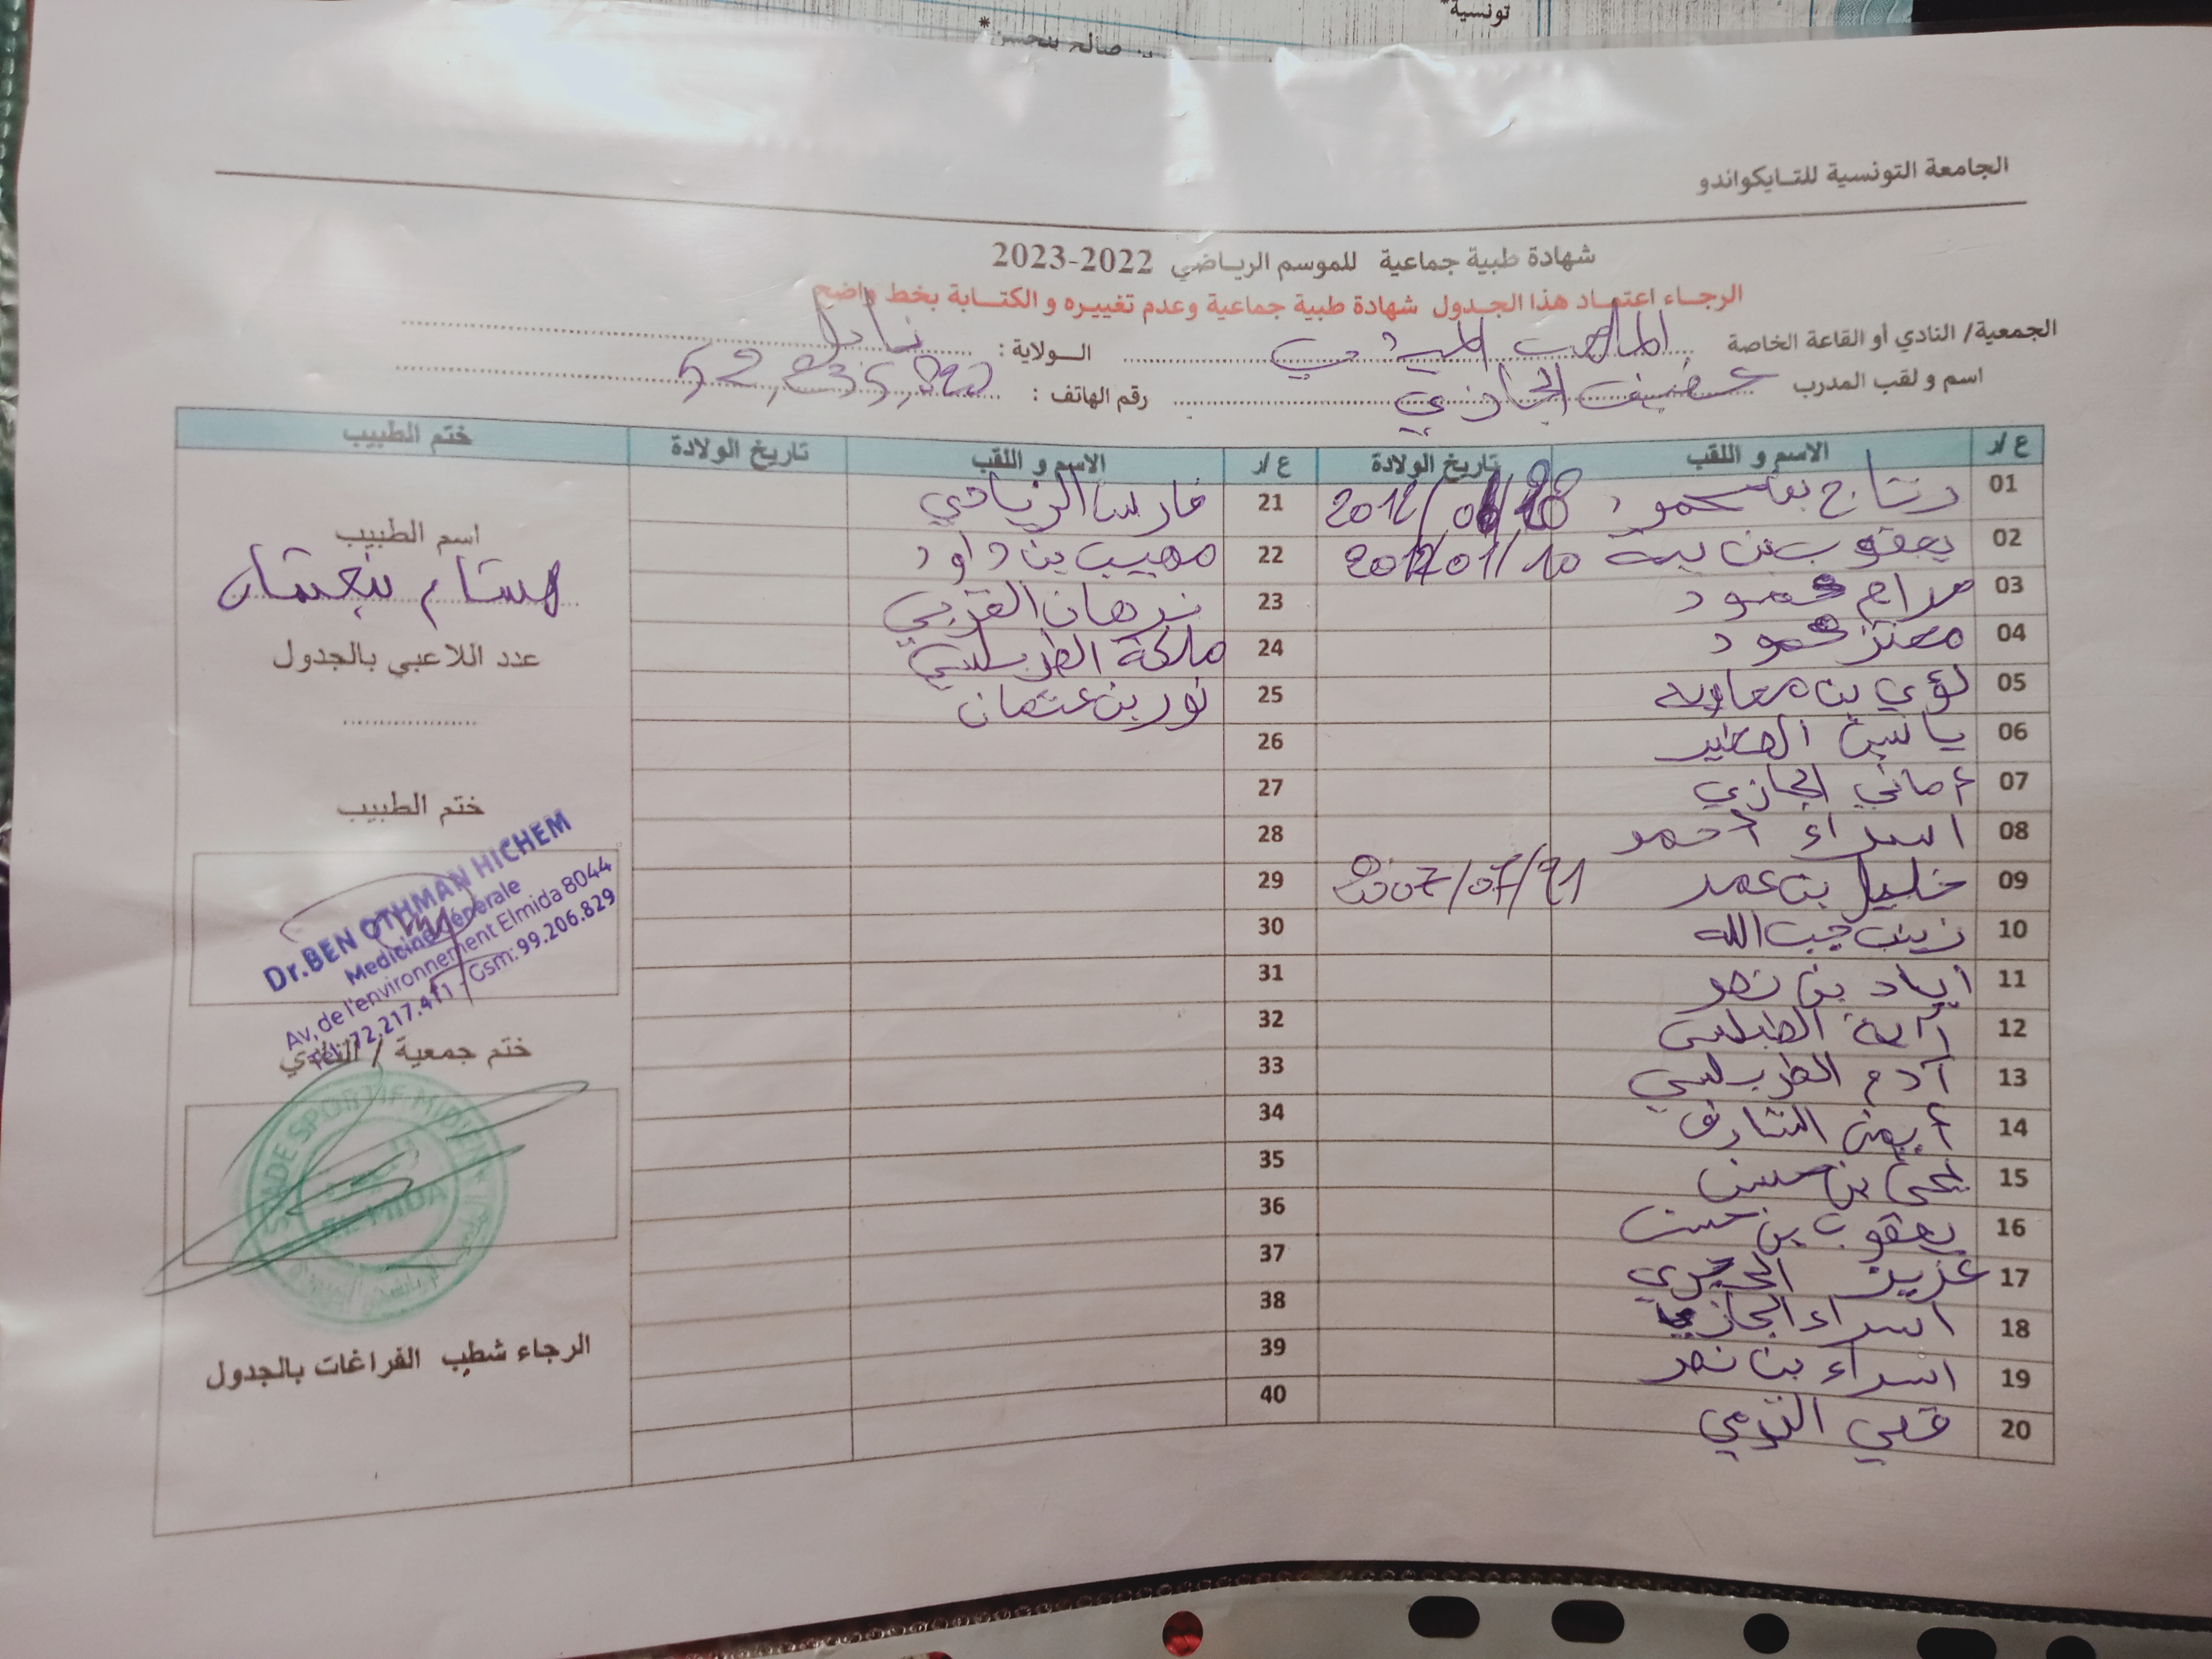 تونسية*
بن صالح بنحسن*
الجامعة التونسية للتايكواندو
شهادة طبية جماعية للموسم الرياضي 2022-2023
الرجاء اعتماد هذا الجدول شهادة طبية جماعية وعدم تغييره و الكتابة بخط واضح
الجمعية/ النادي أو القاعة الخاصة الملعب الميدي الولاية : نابل
اسم و لقب المدرب الجازي رقم الهاتف :
ع /ر الاسم و اللقب تاريخ الولادة ع /ر الاسم و اللقب تاريخ الولادة ختم الطبيب
01 رتاج 2012/ 21 فارس الزيادي
02 يعقوب بن 10/01/2012 22 مهيب بن داود
03 مرام حمود 23 نورهان القزبي
04 معتز حمود 24 ملكة الطربلسي
05 لؤي بن معاوية 25 نور بن عثمان
06 ياسين الصغير 26
07 أماني الجازي 27
08 اسراء أحمد 28
09 خليل بن عمر 21/07/2007 29
10 زينب جب الله 30
11 اياد بن نصر 31
12 آية 32
13 آدم الطربلسي 33
14 أيمن الشارف 34
15 يحيى بن حسين 35
16 يعقوب بن حسن 36
17 عزيز 37
18 اسراء الجازي 38
19 اسراء بن نصر 39
20 40
اسم الطبيب
هشام بنعثمان
عدد اللاعبي بالجدول
ختم الطبيب
Dr.BEN OTHMAN HICHEM
Medicine Générale
Av, de l'environnement Elmida 8044
Tél: 72.217.411 - Gsm: 99.206.829
ختم جمعية / النادي
STADE SPORTIF MIDIEN
EL MIDA
الرجاء شطب الفراغات بالجدول